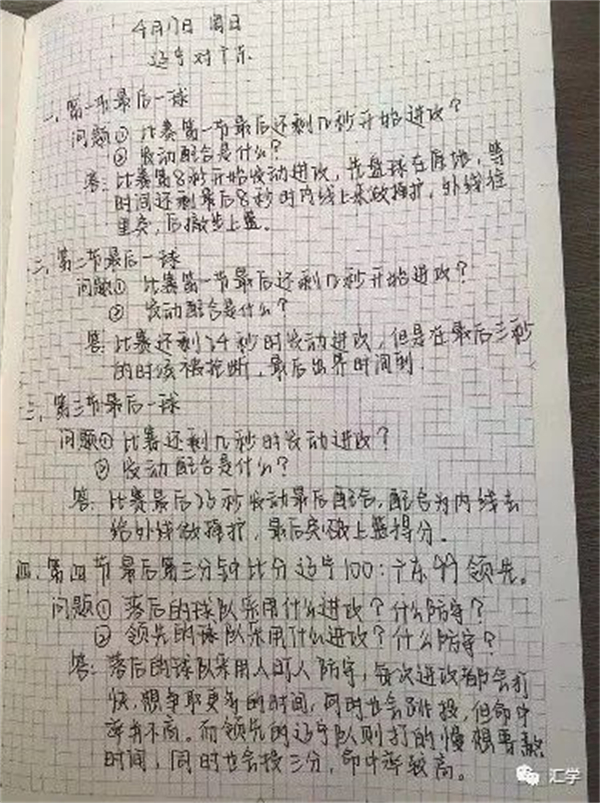 4月17日 周日
辽宁对广东
一、第一节最后一球
问题① 比赛第一节最后还剩几秒开始进攻?
② 发动配合是什么?
答:比赛第8秒开始发动进攻,先盘球在原地,等
时间还剩最后8秒时内线上来做掩护,外线往
里突,后撤步上篮。
二、第二节最后一球
问题① 比赛第一节最后还剩几秒开始进攻?
② 发动配合是什么?
答:比赛还剩14秒时发动进攻,但是在最后三秒
的时候被抢断,最后出界时间到.
三、第三节最后一球
问题① 比赛还剩几秒时发动进攻?
② 发动配合是什么?
答:比赛最后 秒发动最后配合,配合为内线去
给外线做掩护,最后突破上篮得分.
四、第四节最后第三分钟比分辽宁100:广东99领先。
问题① 落后的球队采用什么进攻?什么防守?
② 领先的球队采用什么进攻?什么防守?
答:落后的球队采用人盯人防守,每次进攻都会打
快,想争取更多的时间,同时也会跳投,但命中
率并不高。而领先的辽宁队则打的慢想要
时间,同时也会投三分,命中率较高。
汇学